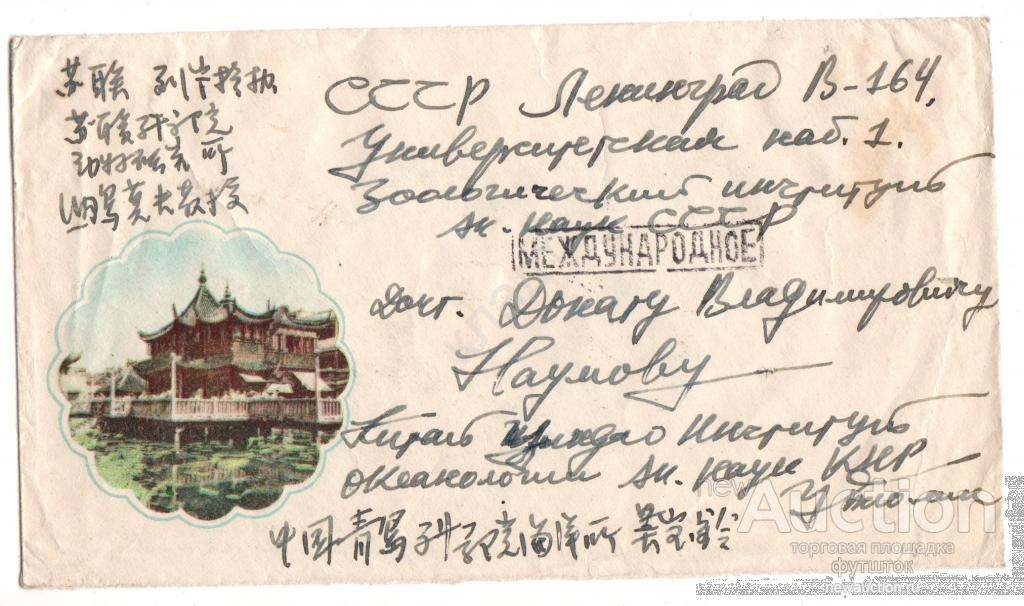 苏联 列宁格勒
苏联科学院
动物研究所
莫夫教授
СССР Ленинград В-164,
Университетская наб. 1.
Зоологический институт
Ак. наук СССР
МЕЖДУНАРОДНОЕ
Докт. Донату Владимировичу
Наумову
Китай Циндао Институт
океанологии Ак. наук КНР
У Баолин
中国青岛科学院海洋所 吴宝铃
newAuction
торговая площадка
футшток
newauction.ru